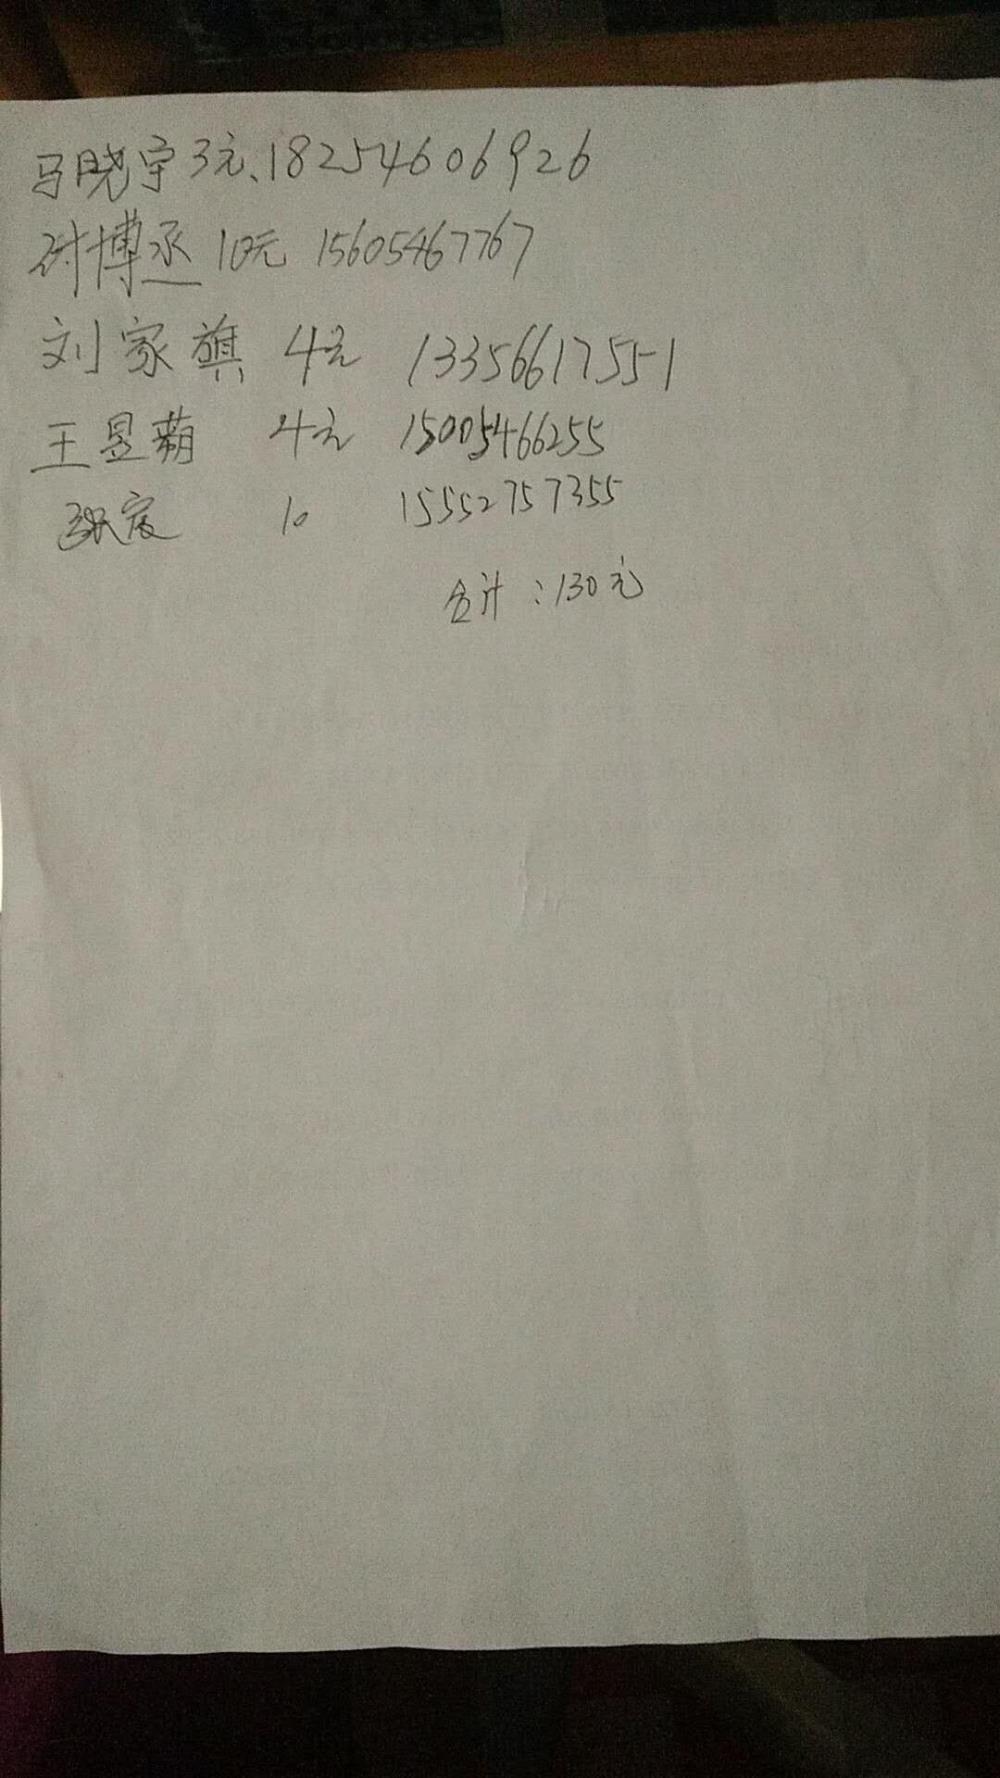 马晓宇3元、18254606926
付博丞 10元 15605467767
刘家旗 4元 13356617551
王昱蘅 4元 15005466255
张宸 10 15552757355
合计:130元